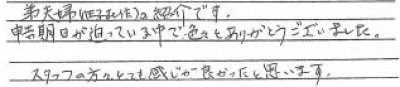 弟夫婦(埼玉在住)の紹介です。
申告期日が迫っている中で色々とありがとうございました。
スタッフの方々とても感じが良かったと思います。